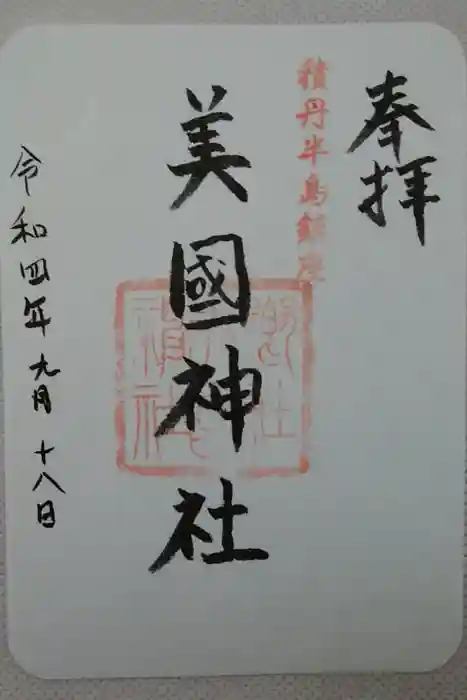 奉拝
積丹半島鎮座
美國神社
令和四年九月十八日